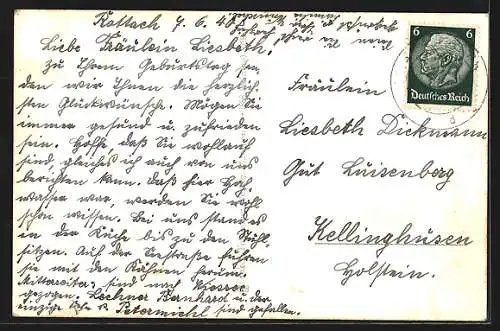 Rottach 9.6.40.
Liebe Fräulein Liesbeth,
zu Ihrem Geburtstag sen-
den wir Ihnen die herzlich-
sten Glückwünsche. Mögen Sie
immer gesund u. zufrieden
sein. Hoffe, daß Sie wohlauf
sind, gleiches ich auch von uns
berichten kann. Daß hier Hoch-
wasser war, werden Sie wohl
schon wissen. Bei uns stand es
in der Küche bis zu den Stühl-
sitzen. Auf der Seestraße fuhren
sie mit den Kähnen herum.
sind nach
gezogen. Lechner Bernhard u. der
einzige v. Petermichl sind gefallen.
6 6
Deutsches Reich
Fräulein
Liesbeth Dickmann
Gut Luisenberg
Kellinghusen
Holstein.